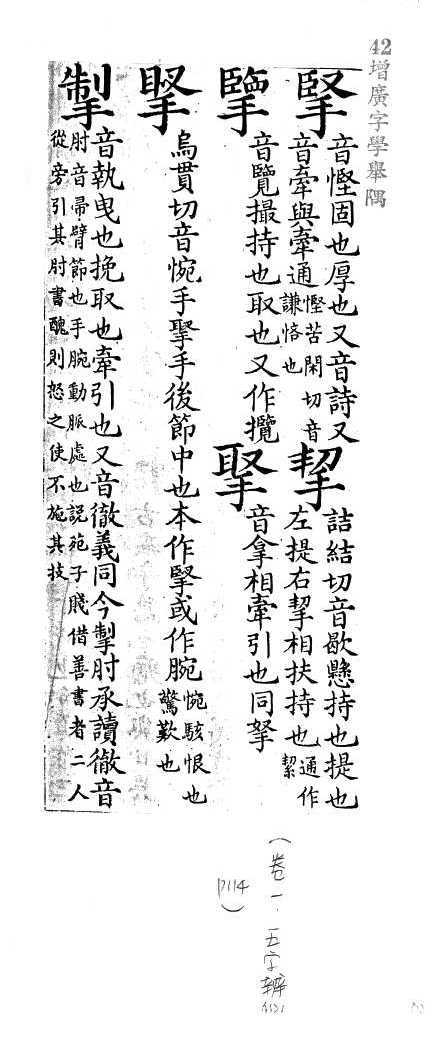 42 增廣字學舉隅
掔
音慳固也厚也又音詩又
音牽與牽通
慳苦閑切音
謙悋也
挈
詰結切音歇懸持也提也
左提右挈相扶持也
通作
絜
擥
音覽撮持也取也又作攬
音拿相牽引也同拏
烏貫切音惋手掔手後節中也本作掔或作腕
惋駭恨也
驚歎也
掣
音執曳也挽取也牽引也又音徹義同今掣肘承讀徹音
肘音帚臂節也手腕動脈處也説苑子賤借善書者二人
從旁引其肘書醜則怒之使不施其技
（卷一．五字辨
P114）